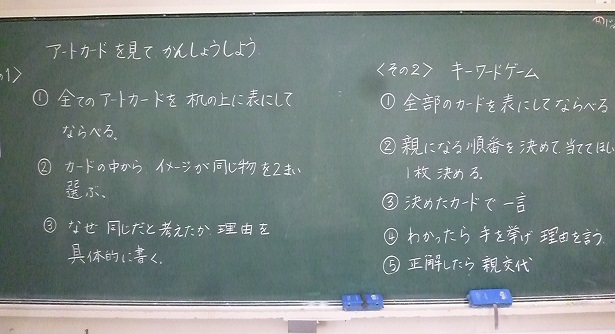 アートカードを見て かんしょうしよう
の1〉
① 全てのアートカードを 机の上に表にして
ならべる。
② カードの中から イメージが同じ物を2まい
選ぶ。
③ なぜ 同じだと考えたか 理由を
具体的に書く。
〈その2〉 キーワードゲーム
① 全部のカードを表にしてならべる
② 親になる順番を決めて、当ててほし
1枚 決める。
③ 決めたカードで一言
④ わかったら 手を挙げ 理由を言う
⑤ 正解したら 親交代